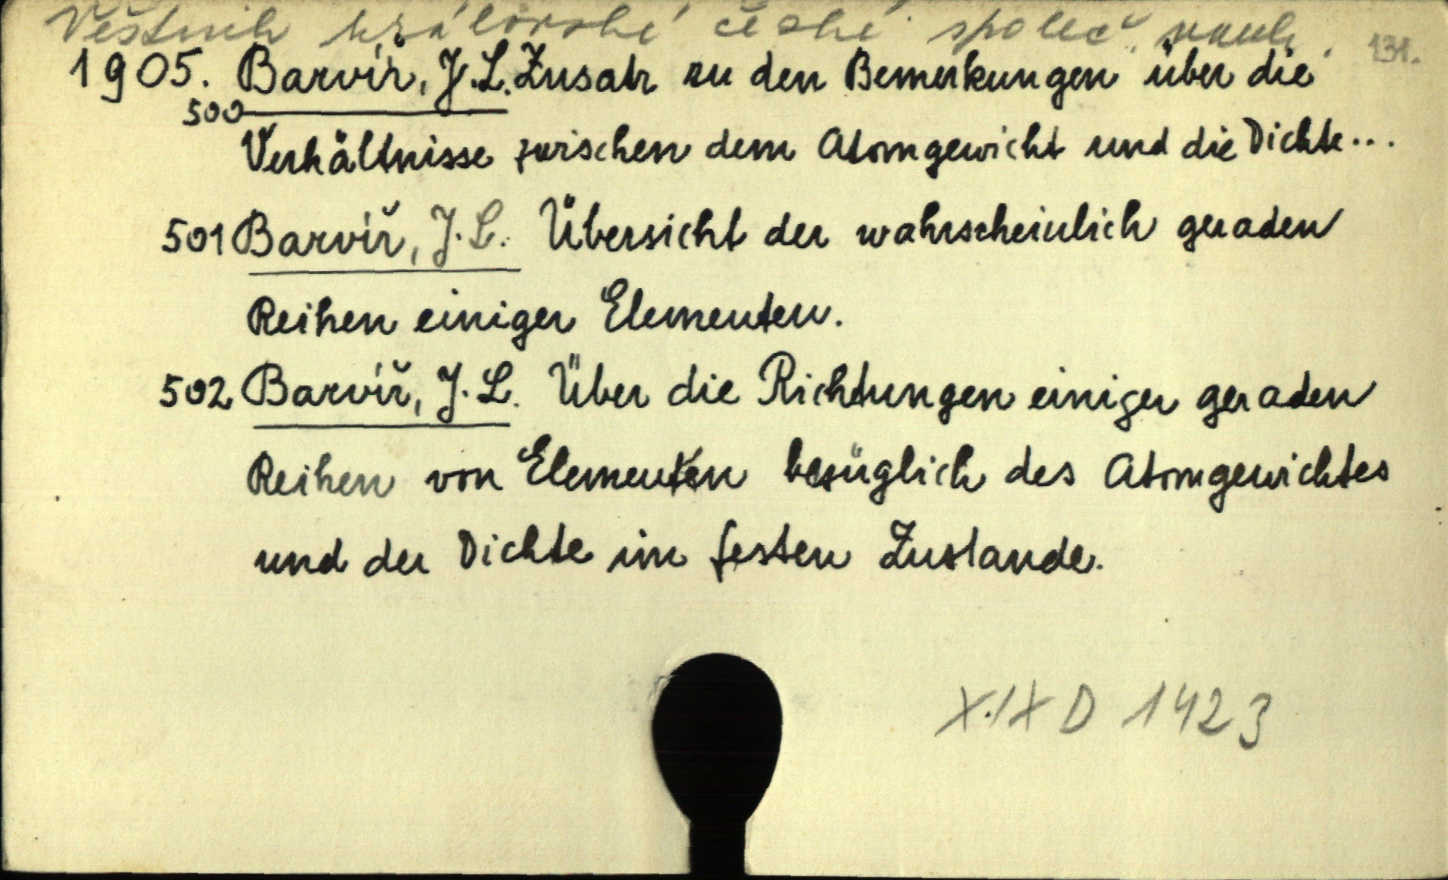 Věstník královské české společ. nauk. 131.
1905. Barvíř, J. L. Zusatz zu den Bemerkungen über die
500
Verhältnisse zwischen dem Atomgewicht und die Dichte...
501 Barvíř, J. L. Übersicht der wahrscheinlich geraden
Reihen einiger Elementen.
502 Barvíř, J. L. Über die Richtungen einiger geraden
Reihen von Elementen bezüglich des Atomgewichtes
und der Dichte im festen Zustande.
XIX D 1423